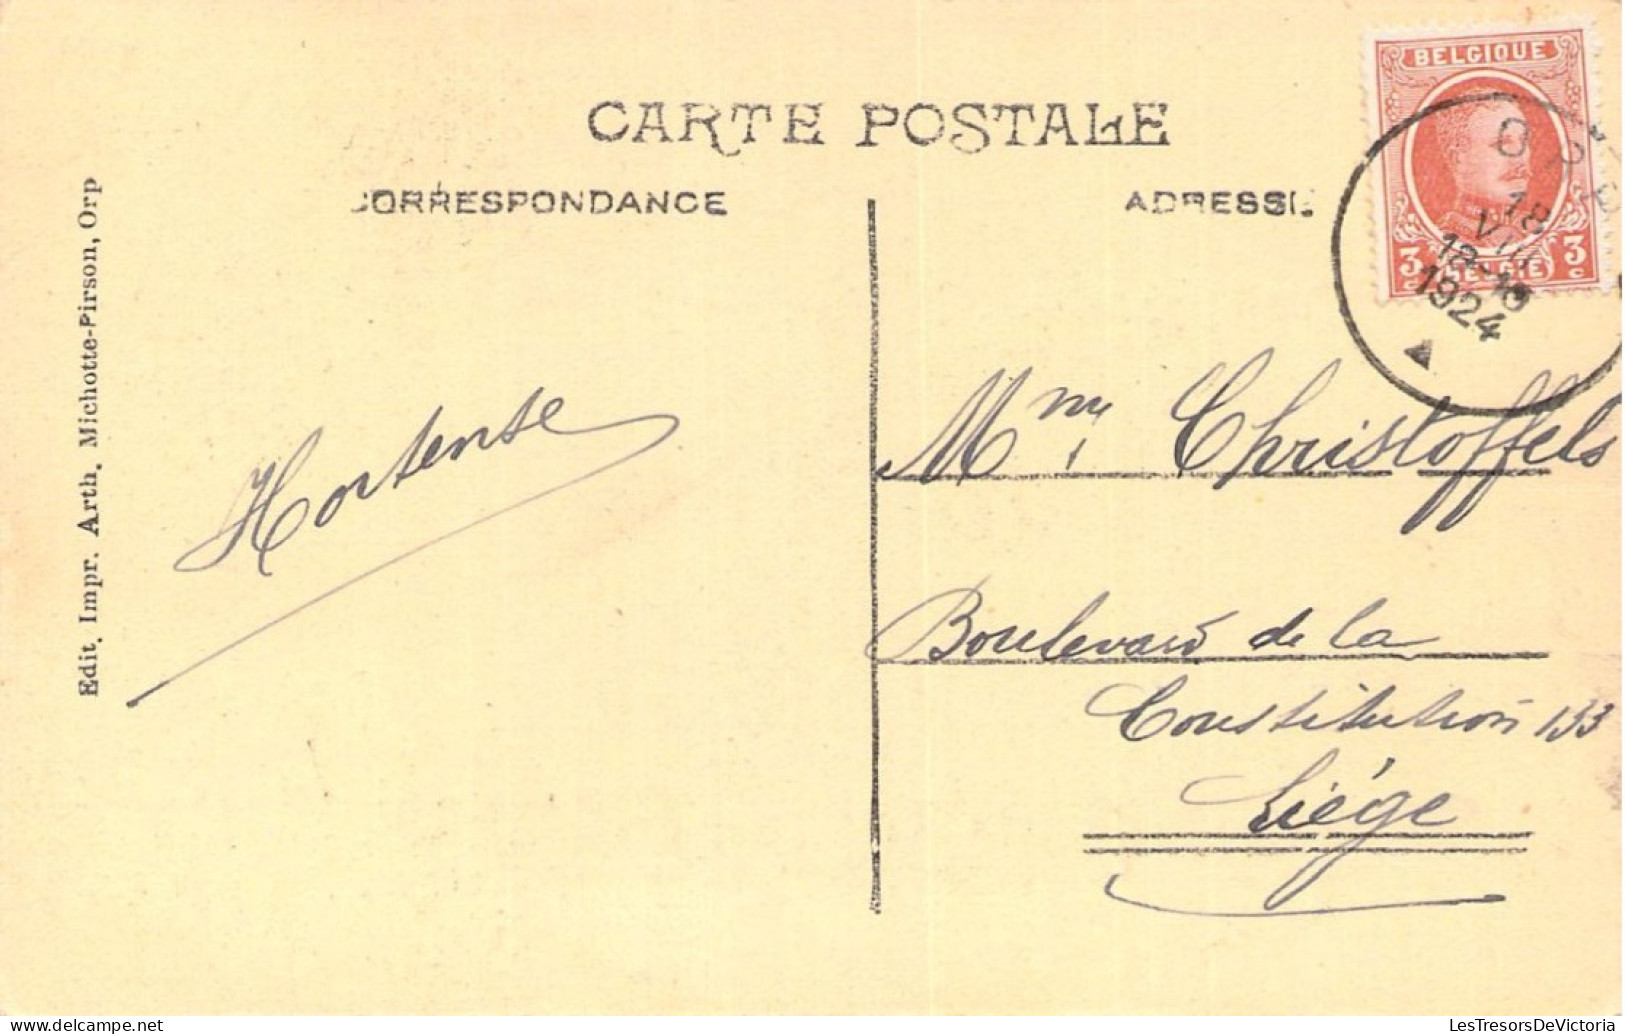 CARTE POSTALE
CORRESPONDANCE
ADRESSE
BELGIQUE
3 BELGIË 3
18
VIII
1924
Edit. Impr. Arth. Michotte-Pirson, Orp
Hortense
Mme Christoffels
Boulevard de la
Constitution 133
Liége
LesTresorsDeVictoria